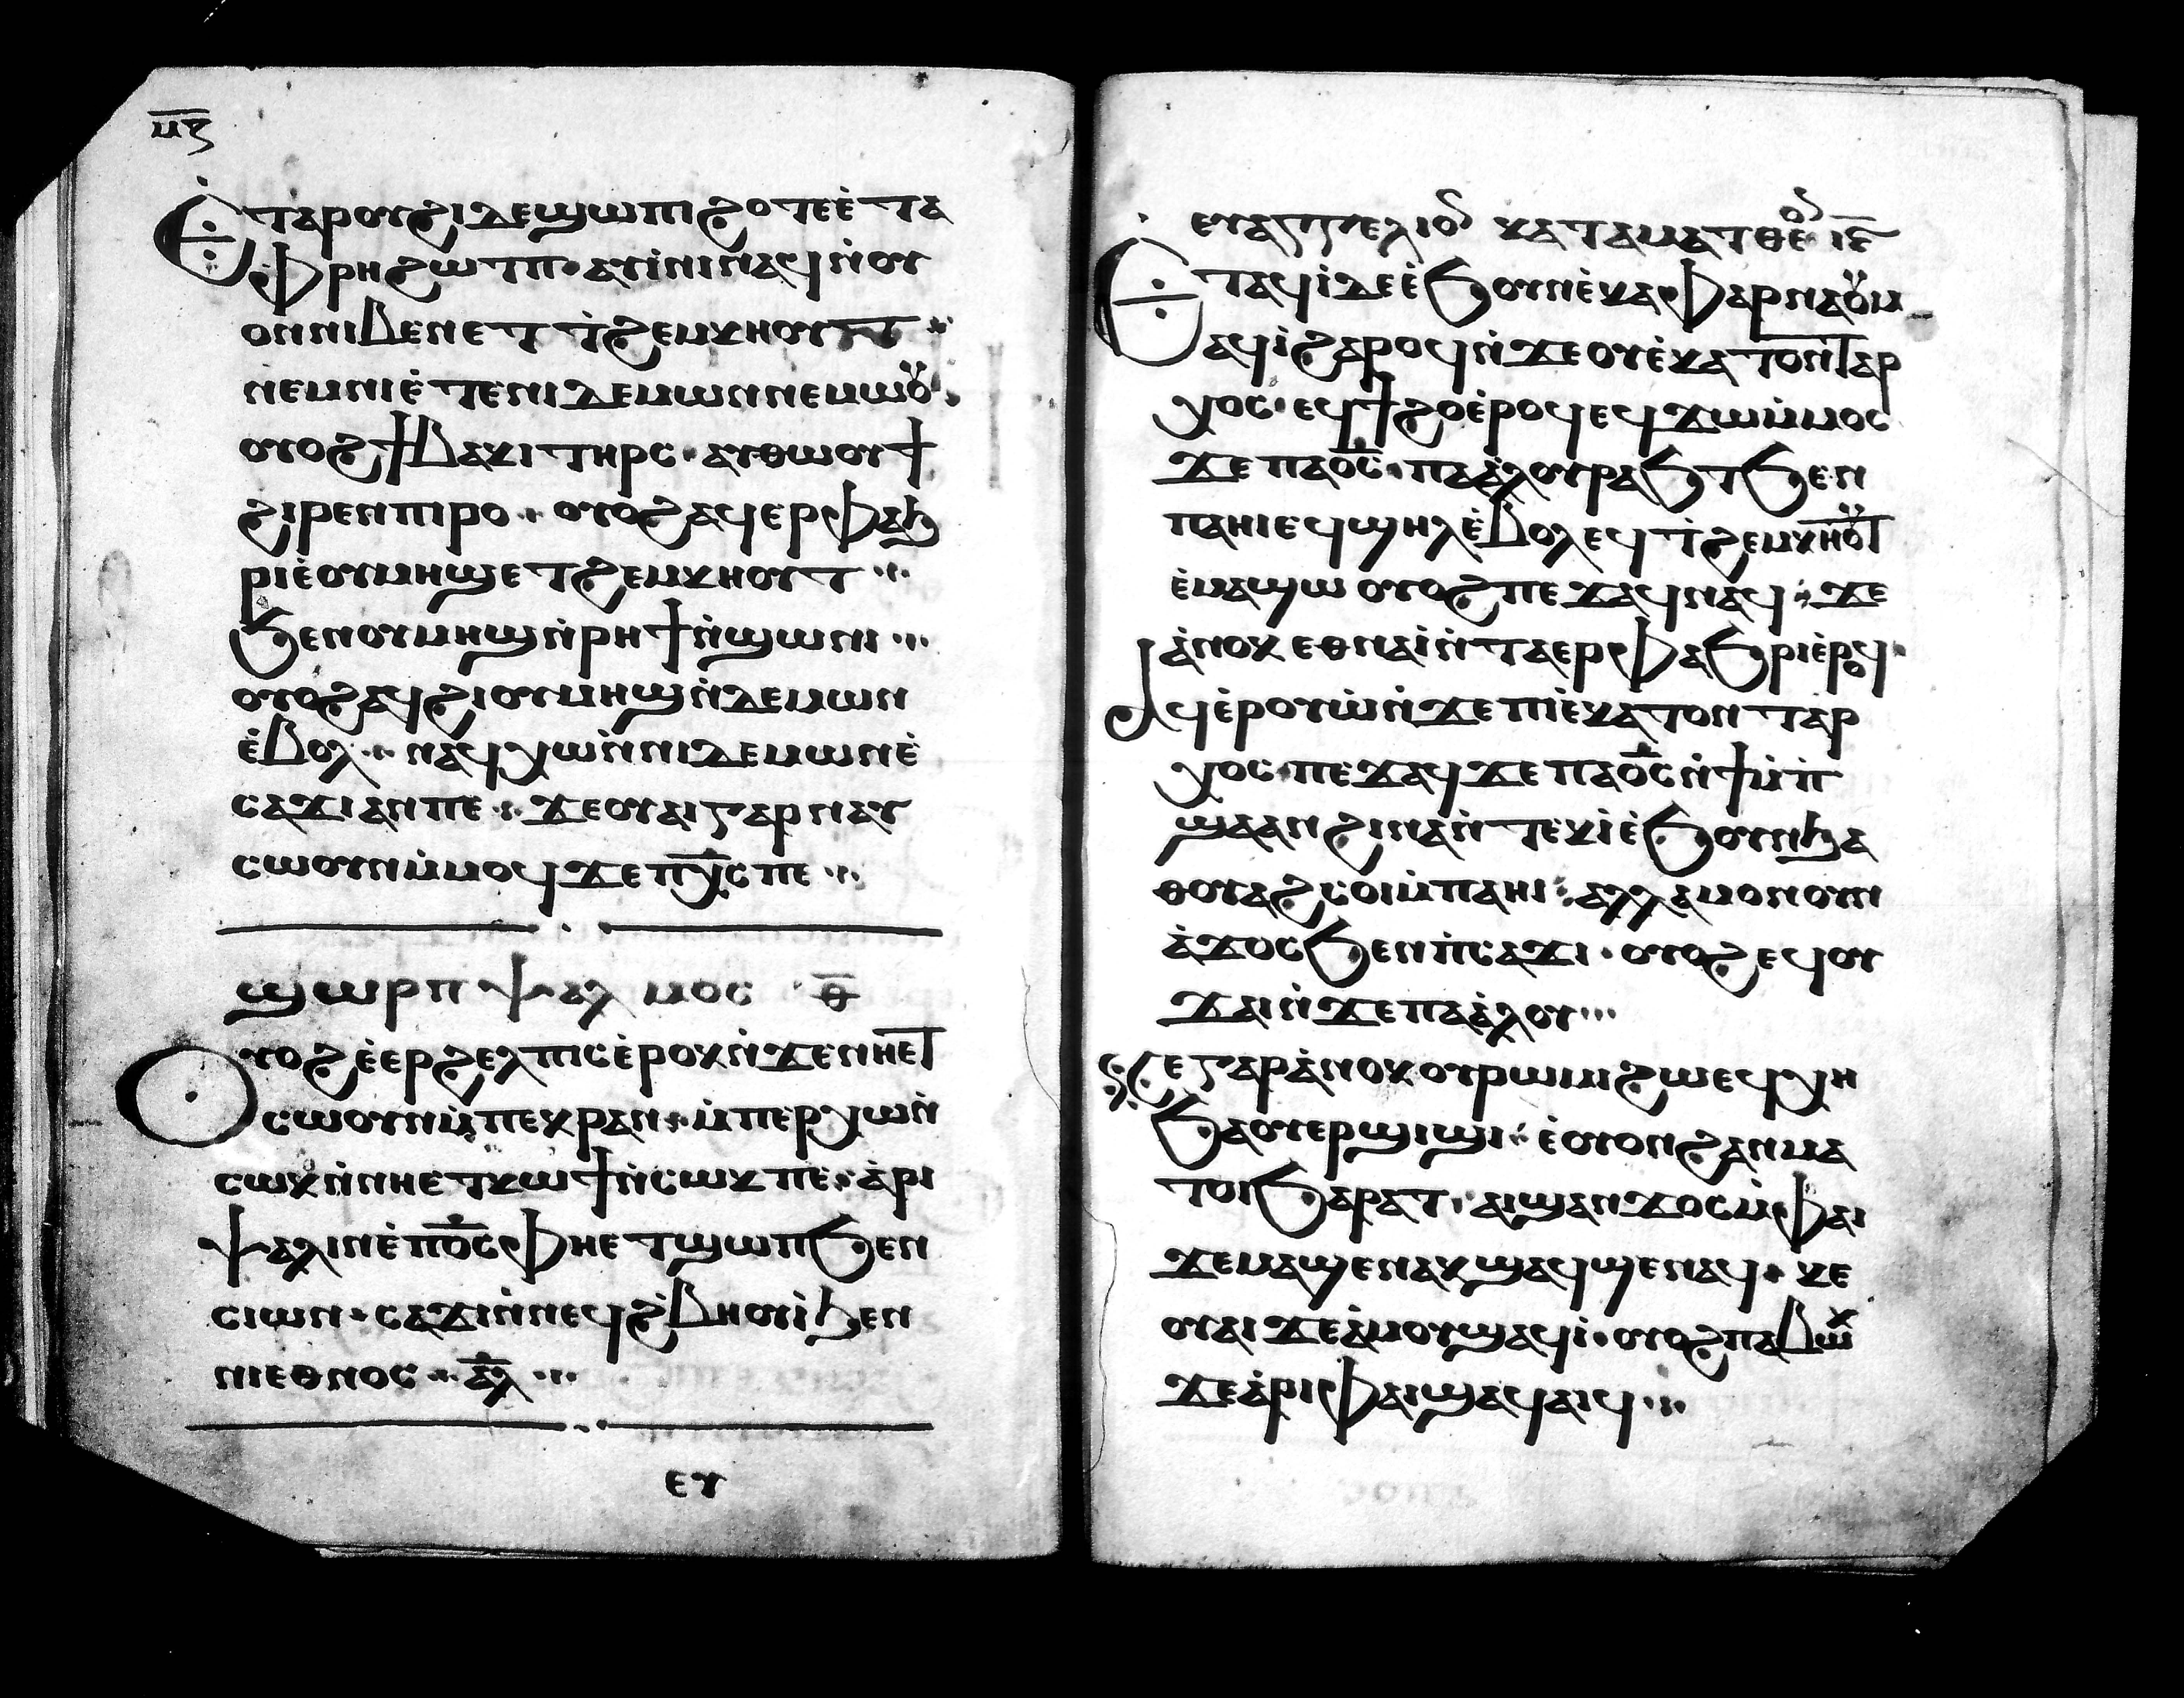 ⲙ̅ⲋ̅
Ⲉⲧⲁⲣⲟⲩϩⲓ ⲇⲉ ϣⲱⲡⲓ ϩⲟⲧⲉ ⲉ̀ⲧⲁ
ⲫⲣⲏ ϩⲱⲧⲡ· ⲁⲩⲓ̀ⲛⲓ ⲛⲁϥ ⲛ̀ⲟⲩ
ⲟⲛ ⲛⲓⲃⲉⲛ ⲉⲧⲧ̀ϩⲉⲙⲕⲏⲟⲩⲧ
ⲛⲉⲙ ⲛⲓⲉ̀ⲧⲉ ⲛⲓⲇⲉⲙⲱⲛ ⲛⲉⲙⲱⲟⲩ
ⲟⲩⲟϩ ϯⲃⲁⲕⲓ ⲧⲏⲣⲥ· ⲁⲩⲑⲱⲟⲩϯ
ϩⲓⲣⲉⲛ ⲡⲓⲣⲟ· ⲟⲩⲟϩ ⲁϥⲉⲣⲫⲁϧ
ⲣⲓ ⲉ̀ⲟⲩⲙⲏϣ ⲉⲧϩⲉⲙⲕⲏⲟⲩⲧ···
ϧⲉⲛ ⲟⲩⲙⲏϣ ⲛ̀ⲣⲏϯ ⲛ̀ϣⲱⲛⲓ···
ⲟⲩⲟϩ ⲁϥϩⲓ ⲟⲩⲙⲏϣ ⲛ̀ⲇⲉⲙⲱⲛ
ⲉ̀ⲃⲟⲗ·· ⲛⲁϥⲭⲱ ⲛ̀ⲛⲓⲇⲉⲙⲱⲛ ⲉ̀
ⲥⲁϫⲓ ⲁⲛ ⲡⲉ·· ϫⲉ ⲟⲩⲁⲓ ⲅⲁⲣ ⲛⲁⲩ
ⲥⲱⲟⲩⲛ ⲙ̀ⲙⲟϥ ϫⲉ ⲡⲭ̅ⲥ ⲡⲉ···
ϣⲱⲣⲡ ⲯⲁⲗⲙⲟⲥ ⲑ̅
Ⲟⲩⲟϩ ⲉ̀ⲉⲣϩⲉⲗⲡⲓⲥ ⲉ̀ⲣⲟⲕ ⲛ̀ϫⲉ ⲛⲏⲉⲧ
ⲥⲱⲟⲩⲛ ⲙ̀ⲡⲉⲕⲣⲁⲛ·· ⲙ̀ⲡⲉⲣⲭⲱ ⲛ̀
ⲥⲱⲕ ⲛ̀ⲛⲏⲉⲧⲕⲱϯ ⲛ̀ⲥⲱⲕ ⲡⲉ· ⲁ̀ⲣⲓ
ⲯⲁⲗⲓⲛ ⲉ̀ⲡⲟ̅ⲥ ⲫⲏⲉⲧϣⲱⲡ ϧⲉⲛ
ⲥⲓⲱⲛ· ⲥⲁϫⲓ ⲛ̀ⲛⲉϥϩ̀ⲃⲏⲟⲩⲓ̀ ϧⲉⲛ
ⲛⲓⲉⲑⲛⲟⲥ·· ⲁ̅ⲗ···
ⲉⲩ
ⲉⲩⲁⲅⲅⲉⲗⲓⲟⲛ ⲕⲁⲧⲁ ⲙⲁⲧⲑⲉⲟⲛ ⲓ̅ⲉ̅
Ⲉⲧⲁϥⲓ̀ ⲇⲉ ⲉ̀ϧⲟⲩⲛ ⲉ̀ⲕⲁⲫⲁⲣⲛⲁⲟⲩⲙ
ⲁϥⲓ̀ ϩⲁⲣⲟϥ ⲛ̀ϫⲉ ⲟⲩⲉ̀ⲕⲁⲧⲟⲛⲧⲁⲣ
ⲭⲟⲥ· ⲉϥϯϩⲟ ⲉ̀ⲣⲟϥ ⲉϥϫⲱ ⲙ̀ⲙⲟⲥ
ϫⲉ ⲡⲁⲟ̅ⲥ· ⲡⲁⲁ̀ⲗⲟⲩ ⲣⲁϧⲧ ϧⲉⲛ
ⲡⲁⲏⲓ ⲉϥϣⲏⲗ ⲉ̀ⲃⲟⲗ ⲉϥⲧ̀ϩⲉⲙⲕⲏⲟⲩⲧ
ⲉ̀ⲙⲁϣⲱ ⲟⲩⲟϩ ⲡⲉϫⲁϥ ⲛⲁϥ· ϫⲉ
ⲁ̀ⲛⲟⲕ ⲉⲑⲛⲁⲓ̀ ⲛ̀ⲧⲁⲉⲣⲫⲁϧⲣⲓ ⲉ̀ⲣⲟϥ·
ⲁϥⲉ̀ⲣⲟⲩⲱ̀ ⲛ̀ϫⲉ ⲡⲓⲉ̀ⲕⲁⲧⲟⲛⲧⲁⲣ
ⲭⲟⲥ· ⲡⲉϫⲁϥ ϫⲉ ⲡⲁⲟ̅ⲥ ⲛ̀ϯⲙ̀ⲡ̀
ϣⲁ ⲁⲛ ϩⲓⲛⲁ ⲛ̀ⲧⲉⲕⲓ̀ ⲉ̀ϧⲟⲩⲛ ϧⲁ
ⲑⲟⲩⲁϩⲥⲟⲓ ⲙ̀ⲡⲁⲏⲓ· ⲁⲗⲗⲁ ⲙⲟⲛⲟⲛ
ⲁ̀ϫⲟⲥ ϧⲉⲛ ⲡ̀ⲥⲁϫⲓ· ⲟⲩⲟϩ ⲉϥⲟⲩ
ϫⲁⲓ ⲛ̀ϫⲉ ⲡⲁⲁ̀ⲗⲟⲩ···
Ⲕⲉ ⲅⲁⲣ ⲁ̀ⲛⲟⲕ ⲟⲩⲣⲱⲙⲓ ϩⲱ ⲉϥⲭⲏ
ϧⲁ ⲟⲩⲉⲣϣⲓϣⲓ· ⲉ̀ⲟⲩⲟⲛ ϩⲁⲛⲙⲁ
ⲧⲟⲓ ϧⲁⲣⲁⲧ· ⲁⲓϣⲁⲛϫⲟⲥ ⲙ̀ⲫⲁⲓ
ϫⲉ ⲙⲁϣⲉⲛⲁⲕ ϣⲁϥϣⲉⲛⲁϥ· ⲕⲉ
ⲟⲩⲁⲓ ϫⲉ ⲁ̀ⲙⲟⲩ ϣⲁϥⲓ̀· ⲟⲩⲟϩ ⲡⲁⲃⲱⲕ
ϫⲉ ⲁ̀ⲣⲓ ⲫⲁⲓ ϣⲁϥⲁⲓϥ···